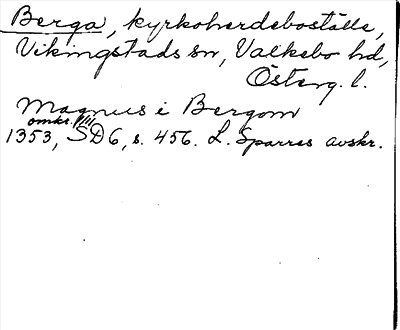 Berga, kyrkoherdeboställe,
Vikingstads sn, Valkebo hd,
Österg. l.
Magnus i Bergom
omkr.
1353, SD6, s. 456. L. Sparres avskr.